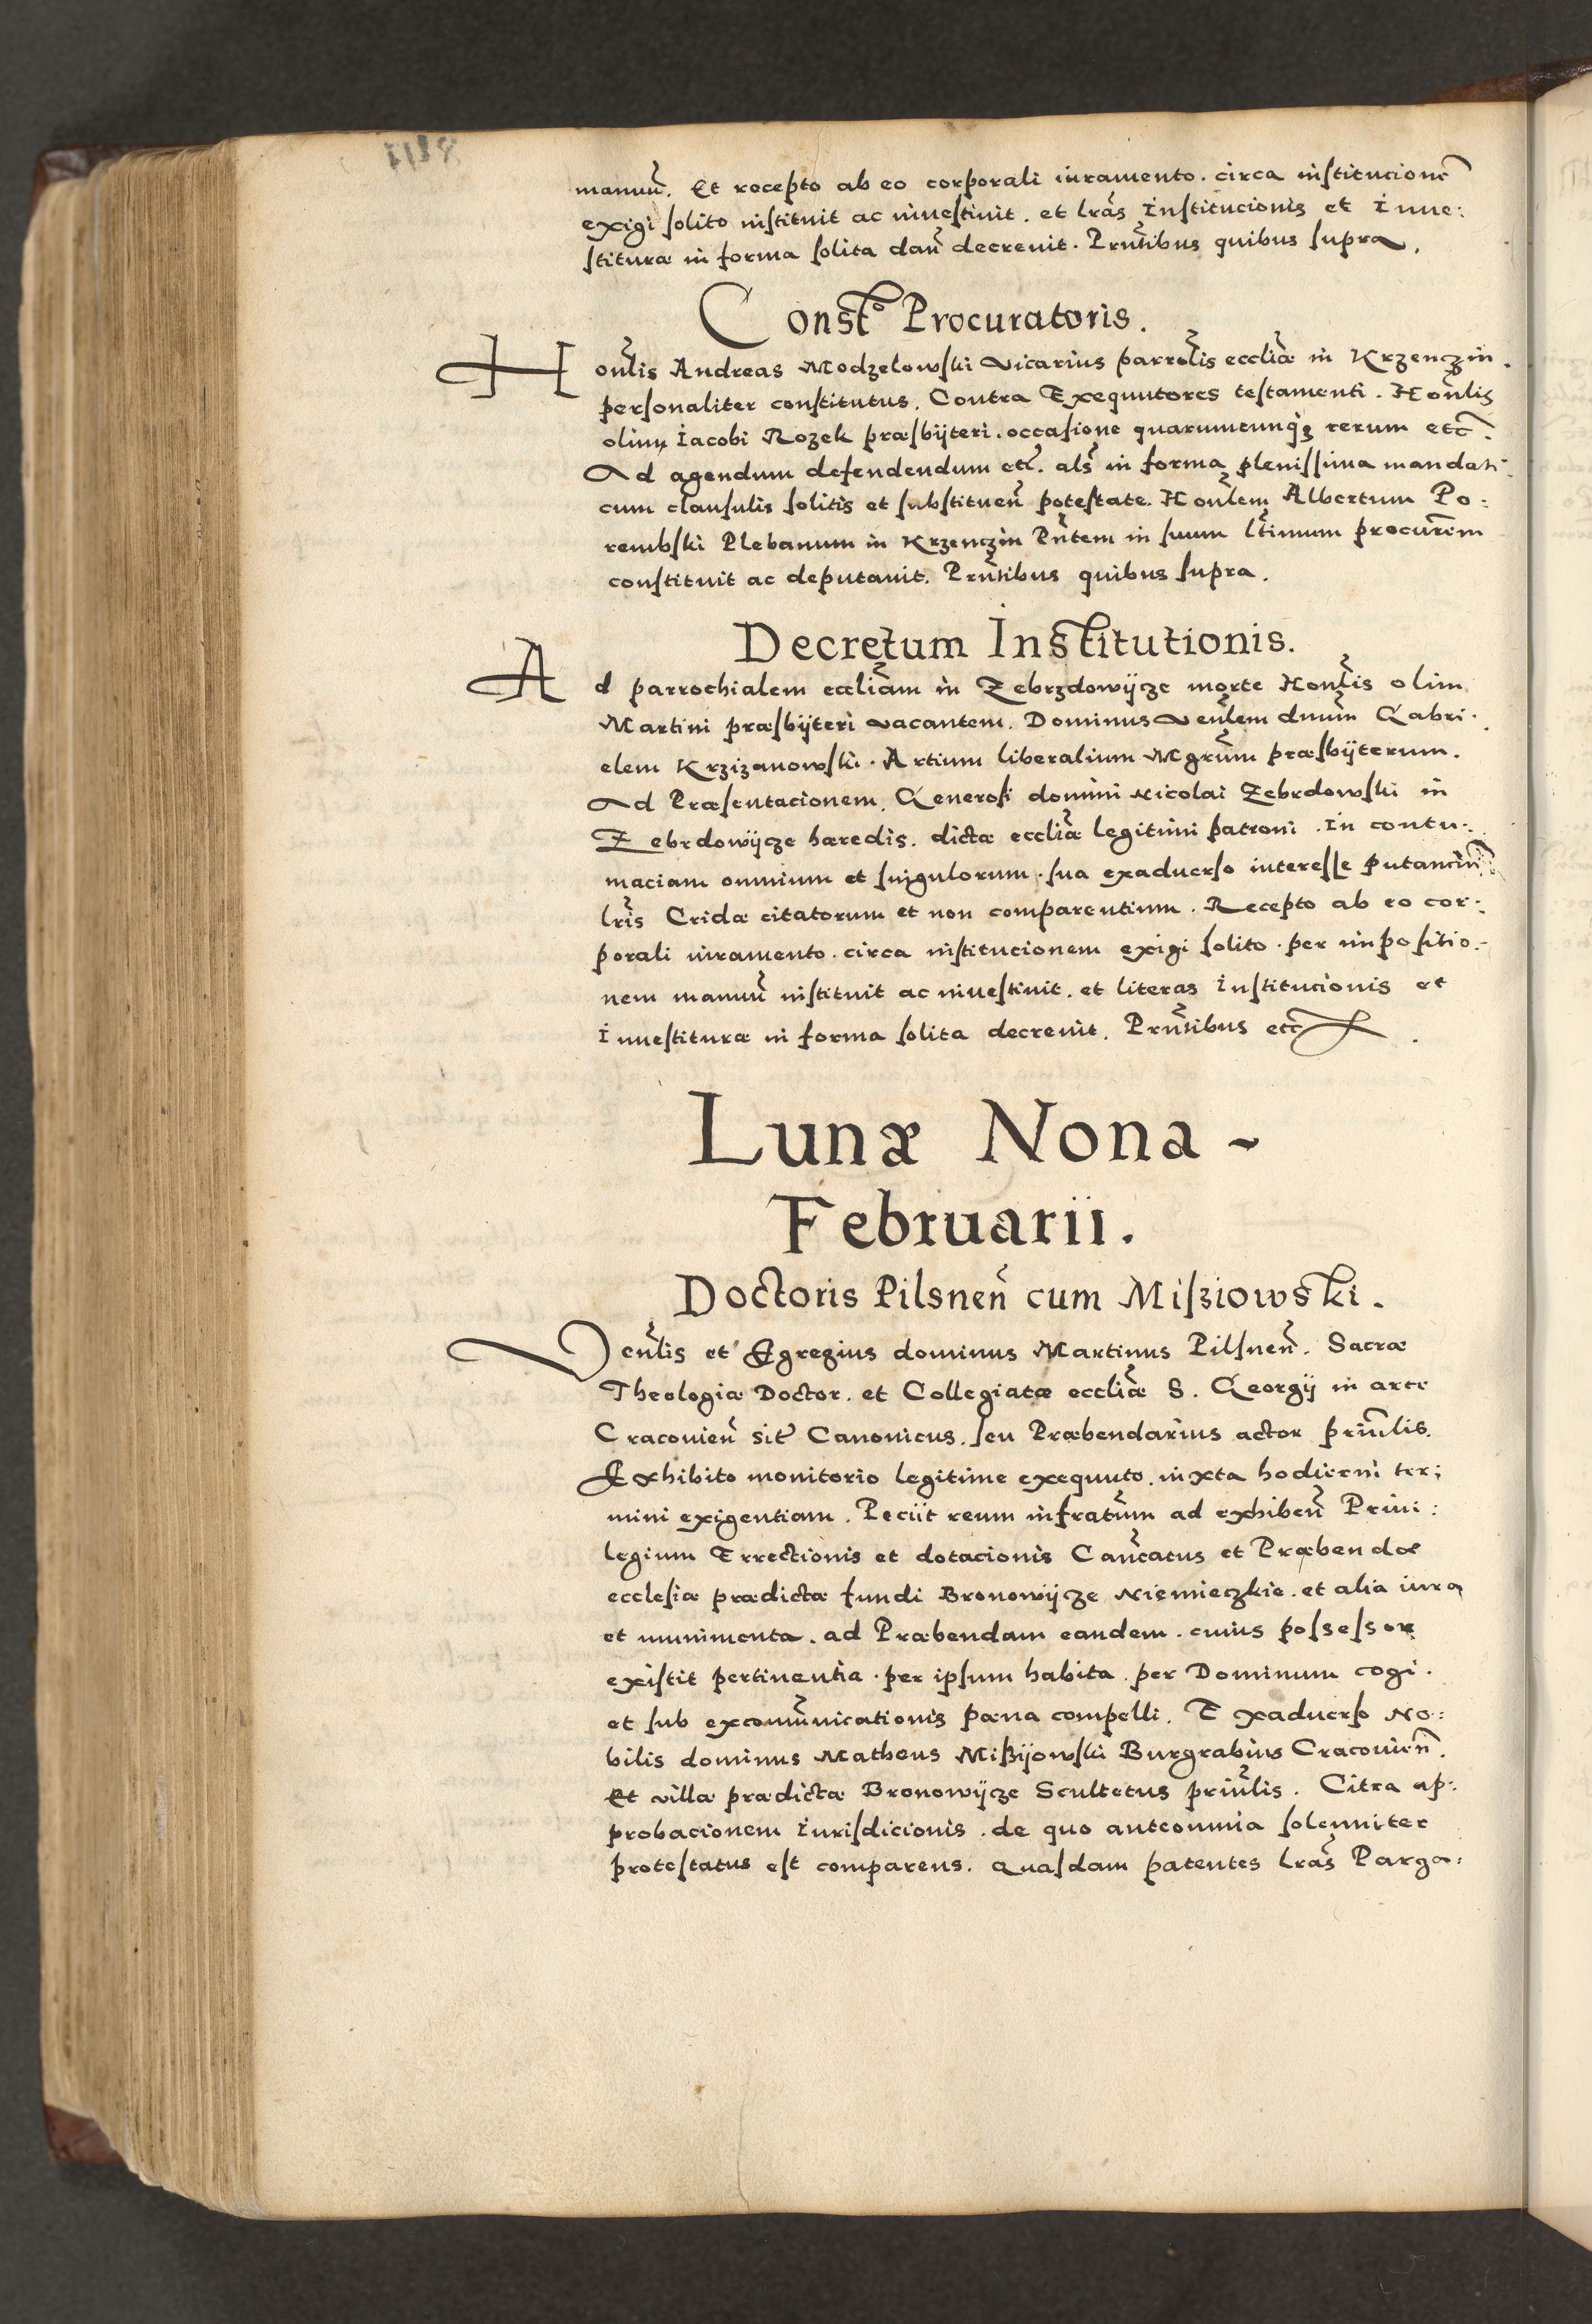 manuū. Et recepto ab eo corporali iuramento. circa institucionē
exigi solito instituit ac inuestiuit. et lrās Institucionis et Inue:
stituræ in forma solita dan̄ decreuit. Prn̄tibus quibus supra.
Constō Procuratoris.
Honl̄is Andreas Modzelowski Vicarius parrol̄is eccliǣ in Krzenczin.
personaliter constitutus. Contra Exequutores testamenti. Honl̄is
olim Iacobi Rozek præsbÿteri. occasione quarumcunqꝫ rerum etc̄.
Ad agendum defendendum etc̄. als̄ in forma plenissima mandati
cum clausulis solitis et substituen̄ potestate. Honl̄em Albertum Po:
rembski Plebanum in Krzenczin Pn̄tem in suum lt̄imum procurēm
constituit ac deputauit. Prn̄tibus quibus supra.
Decretum Institutionis.
Ad parrochialem eccliām in Zebrzdowÿcze morte Honl̄is olim
Martini præsbÿteri vacantem. Dominus Venl̄em dnūm Gabri:
elem Krzizanowski. Artium liberalium Mgrūm præsbÿterum.
Ad Præsentacionem Generosi domini Nicolai Zebrdowski in
Zebrdowÿcze hæredis. dictæ eccliǣ legitimi patroni. In contu:
maciam omnium et singulorum. sua exaduerso interesse putanciū
lrīs Cridæ citatorum et non comparentium. Recepto ab eo cor:
porali iuramento. circa institucionem exigi solito. per impositio:
nem manuū instituit ac inuestiuit. et literas Institucionis et
Inuestituræ in forma solita decreuit. Prn̄tibus etc̄
Lunæ Nona -
Februarii.
Doctoris Pilsnen̄ cum Misziowski.
Venl̄is et Egregius dominus Martinus Pilsnen̄. Sacræ
Theologiæ Doctor. et Collegiatæ eccliǣ S. Georgÿ in arce
Cracouien̄ sit̄ Canonicus. seu Præbendarius actor prinl̄is.
Exhibito monitorio legitime exequuto. iuxta hodierni ter:
mini exigentiam. Peciit reum infratūm ad exhiben̄ Priui:
legium Errectionis et dotacionis Canc̄atus et Præbendæ
ecclesiæ prædictæ fundi Bronowÿcze Niemieczkie. et alia iura
et munimenta. ad Præbendam eandem. cuius possessor
existit pertinentia. per ipsum habita. per Dominum cogi.
et sub excomūnicationis pæna compelli. Exaduerso No:
bilis dominus Matheus Mißÿowski Burgrabius Cracouien̄.
Et villæ prædictæ Bronowÿcze Scultetus prinl̄is. Citra ap:
probacionem Iurisdicionis. de quo anteomnia solenniter
protestatus est comparens. Quasdam patentes lrās Parga: